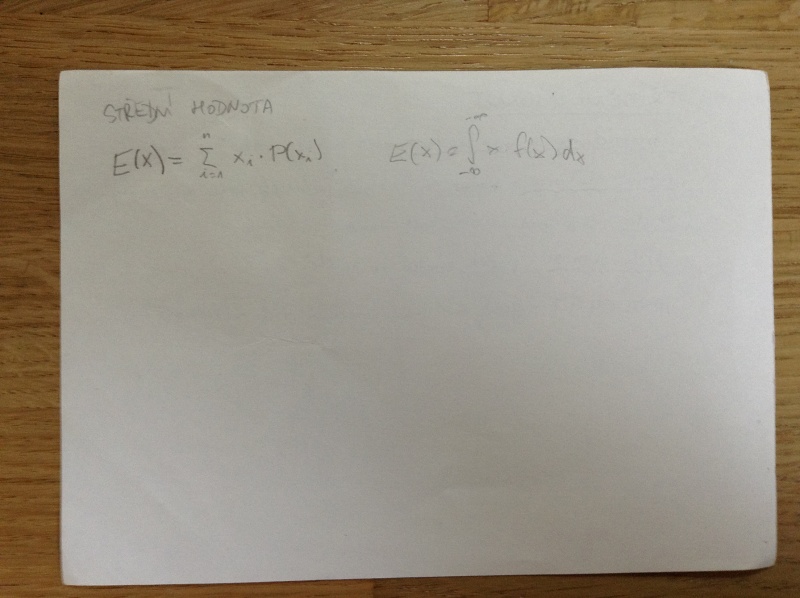 STŘEDNÍ HODNOTA
E(x) = ∑_{i=1}^{n} x_i · P(x_i) E(x) = ∫_{-∞}^{-∞} x · f(x) dx